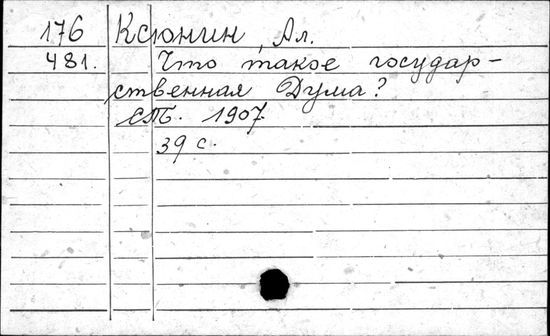 176 Ксюнин, Ал.
481. Что такое государ-
ственная Дума?
1907.
39 с.